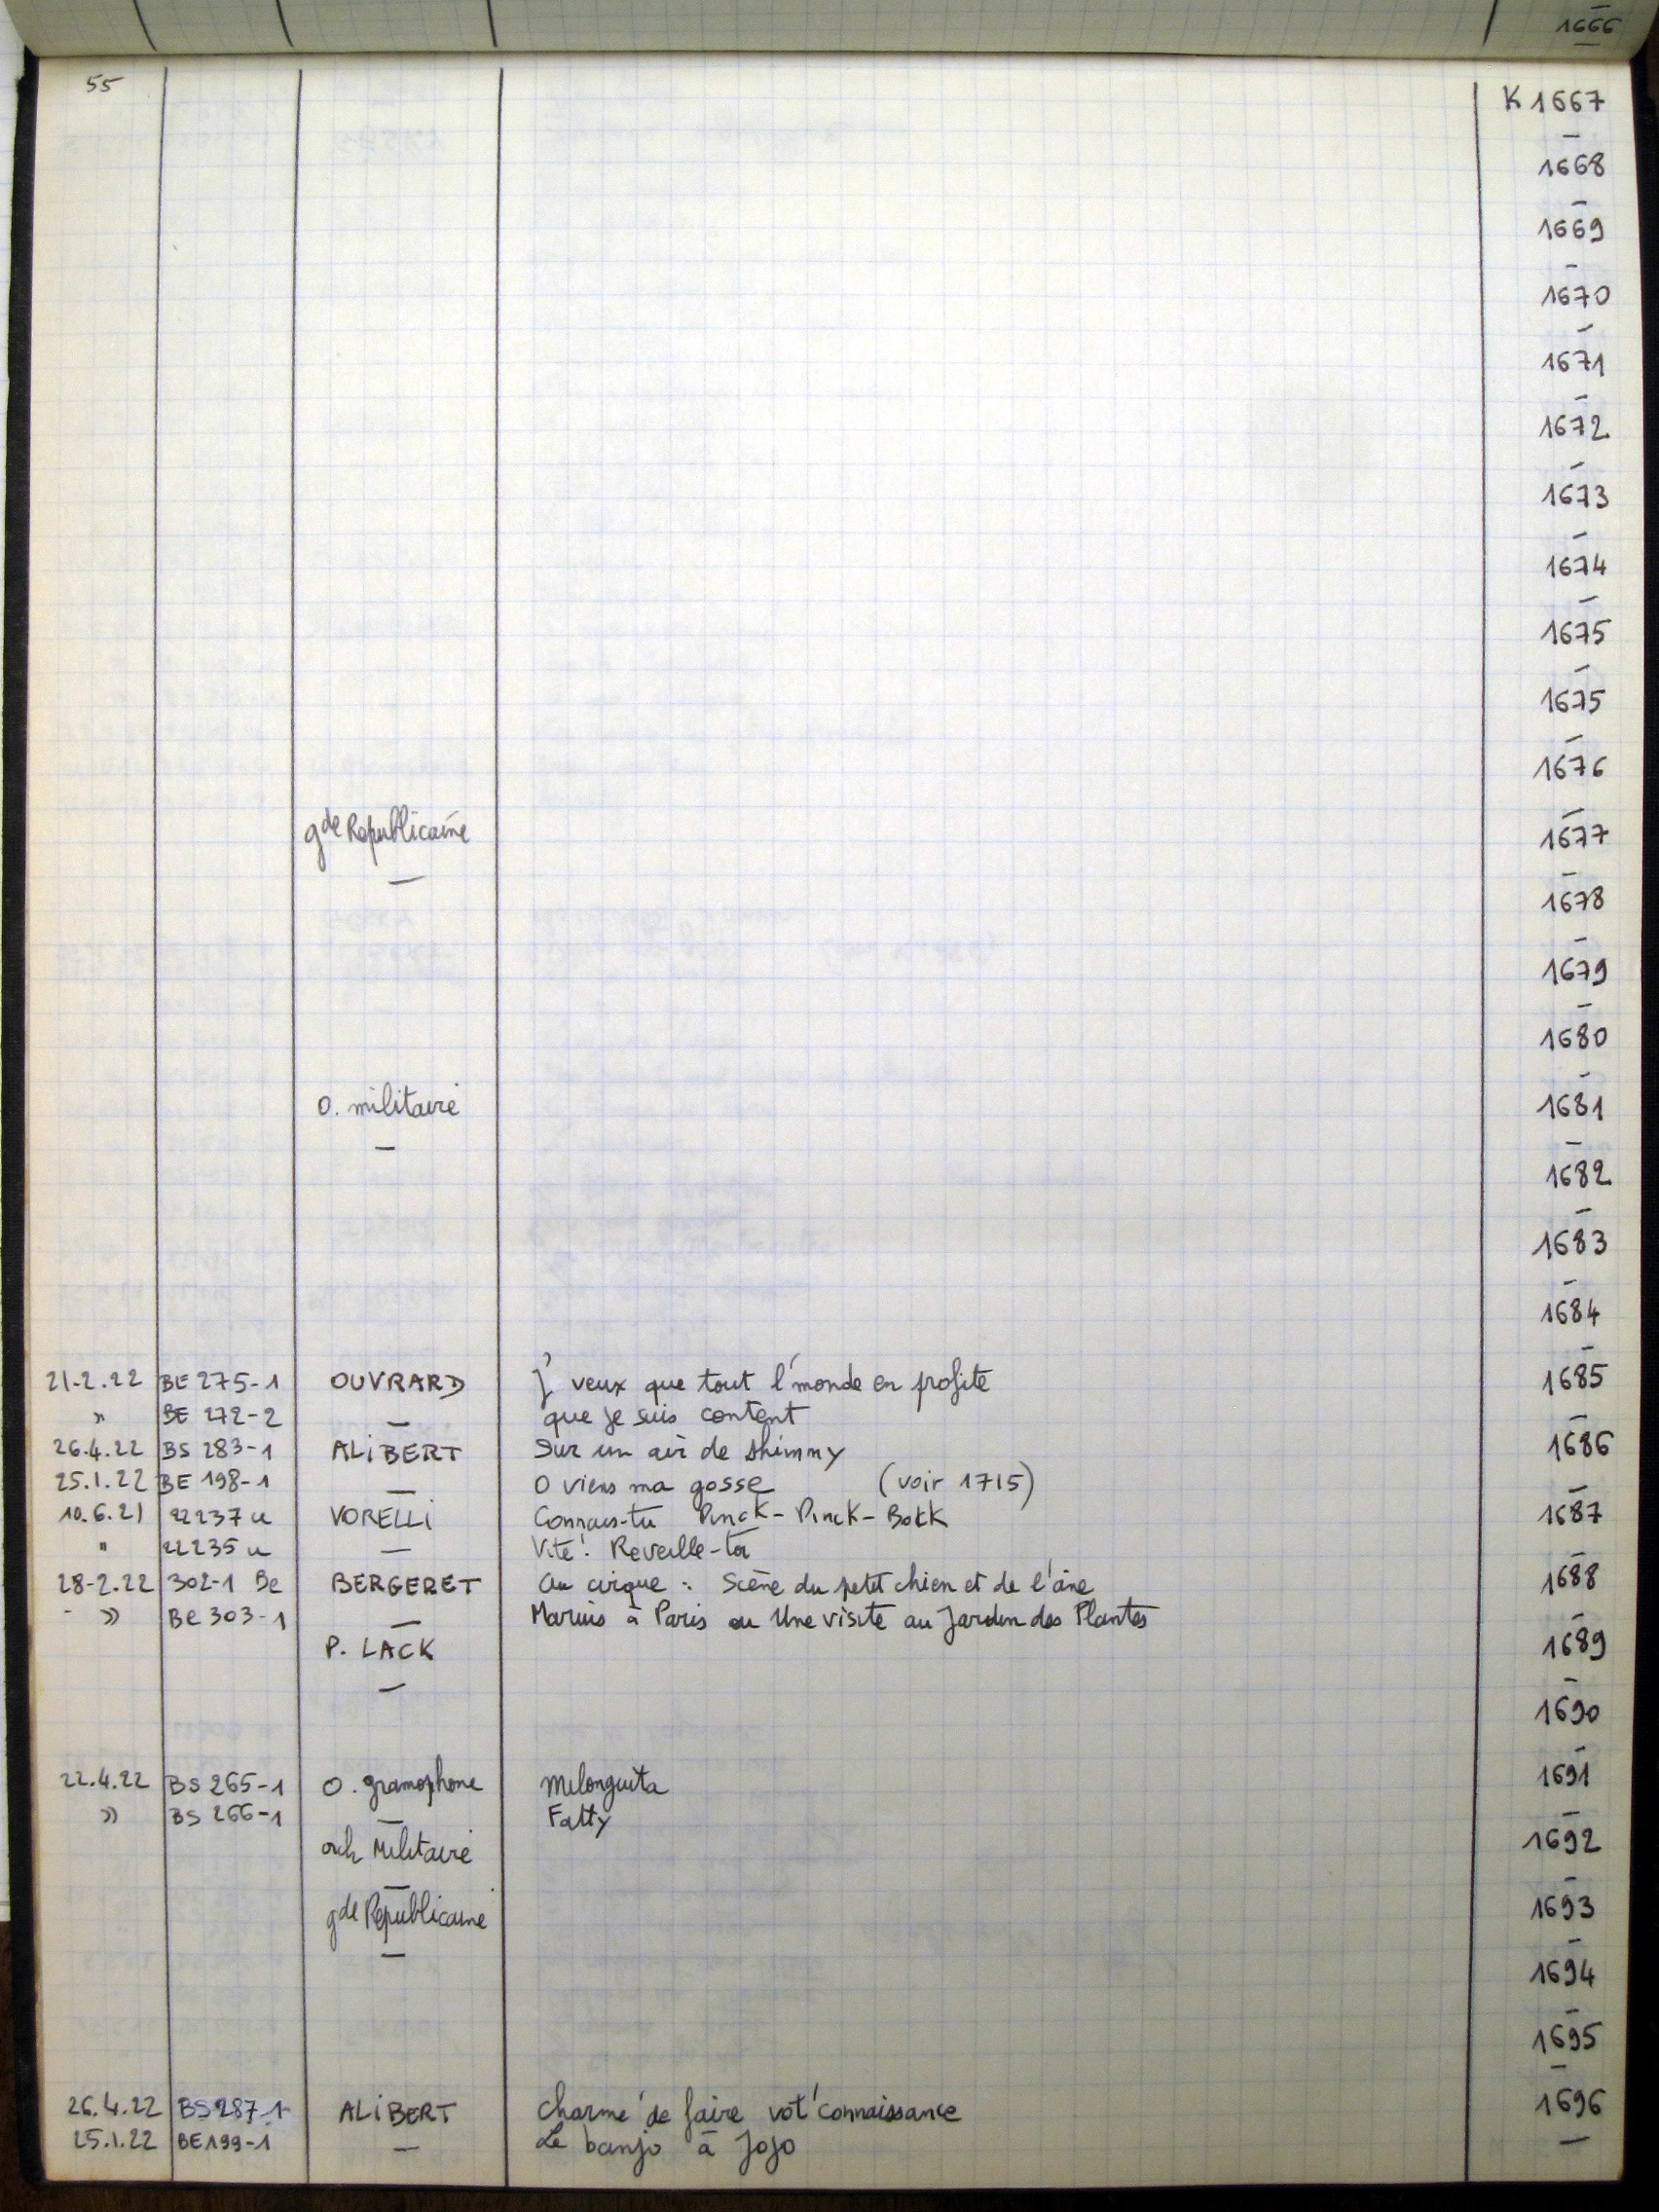 1666
55 K 1667
—
1668
—
1669
—
1670
—
1671
—
1672
—
1673
—
1674
—
1675
—
1675
—
1676
—
gde Républicaine 1677
— —
1678
—
1679
—
1680
—
O. militaire 1681
— —
1682
—
1683
—
1684
—
21-2.22 BE 275-1 OUVRARD J' veux que tout l'monde en profite 1685
" BE 272-2 — que je suis content —
26.4.22 BS 283-1 ALIBERT Sur un air de shimmy 1686
25.1.22 BE 198-1 — O viens ma gosse (voir 1715) —
10.6.21 22237 u VORELLI Connais-tu Pinck-Pinck-Bokk 1687
" 22235 u — Vite! Reveille-toi —
28-2.22 302-1 Be BERGERET Au cirque : Scène du petit chien et de l'âne 1688
- » Be 303-1 — Marius à Paris ou Une visite au Jardin des Plantes —
P. LACK 1689
— —
1690
—
22.4.22 BS 265-1 O. gramophone Milonguita 1691
» BS 266-1 — Fatty —
orch Militaire 1692
— —
gde Républicaine 1693
— —
1694
—
1695
—
26.4.22 BS 287-1 ALIBERT Charmé de faire vot' connaissance 1696
25.1.22 BE 199-1 — Le banjo à Jojo —